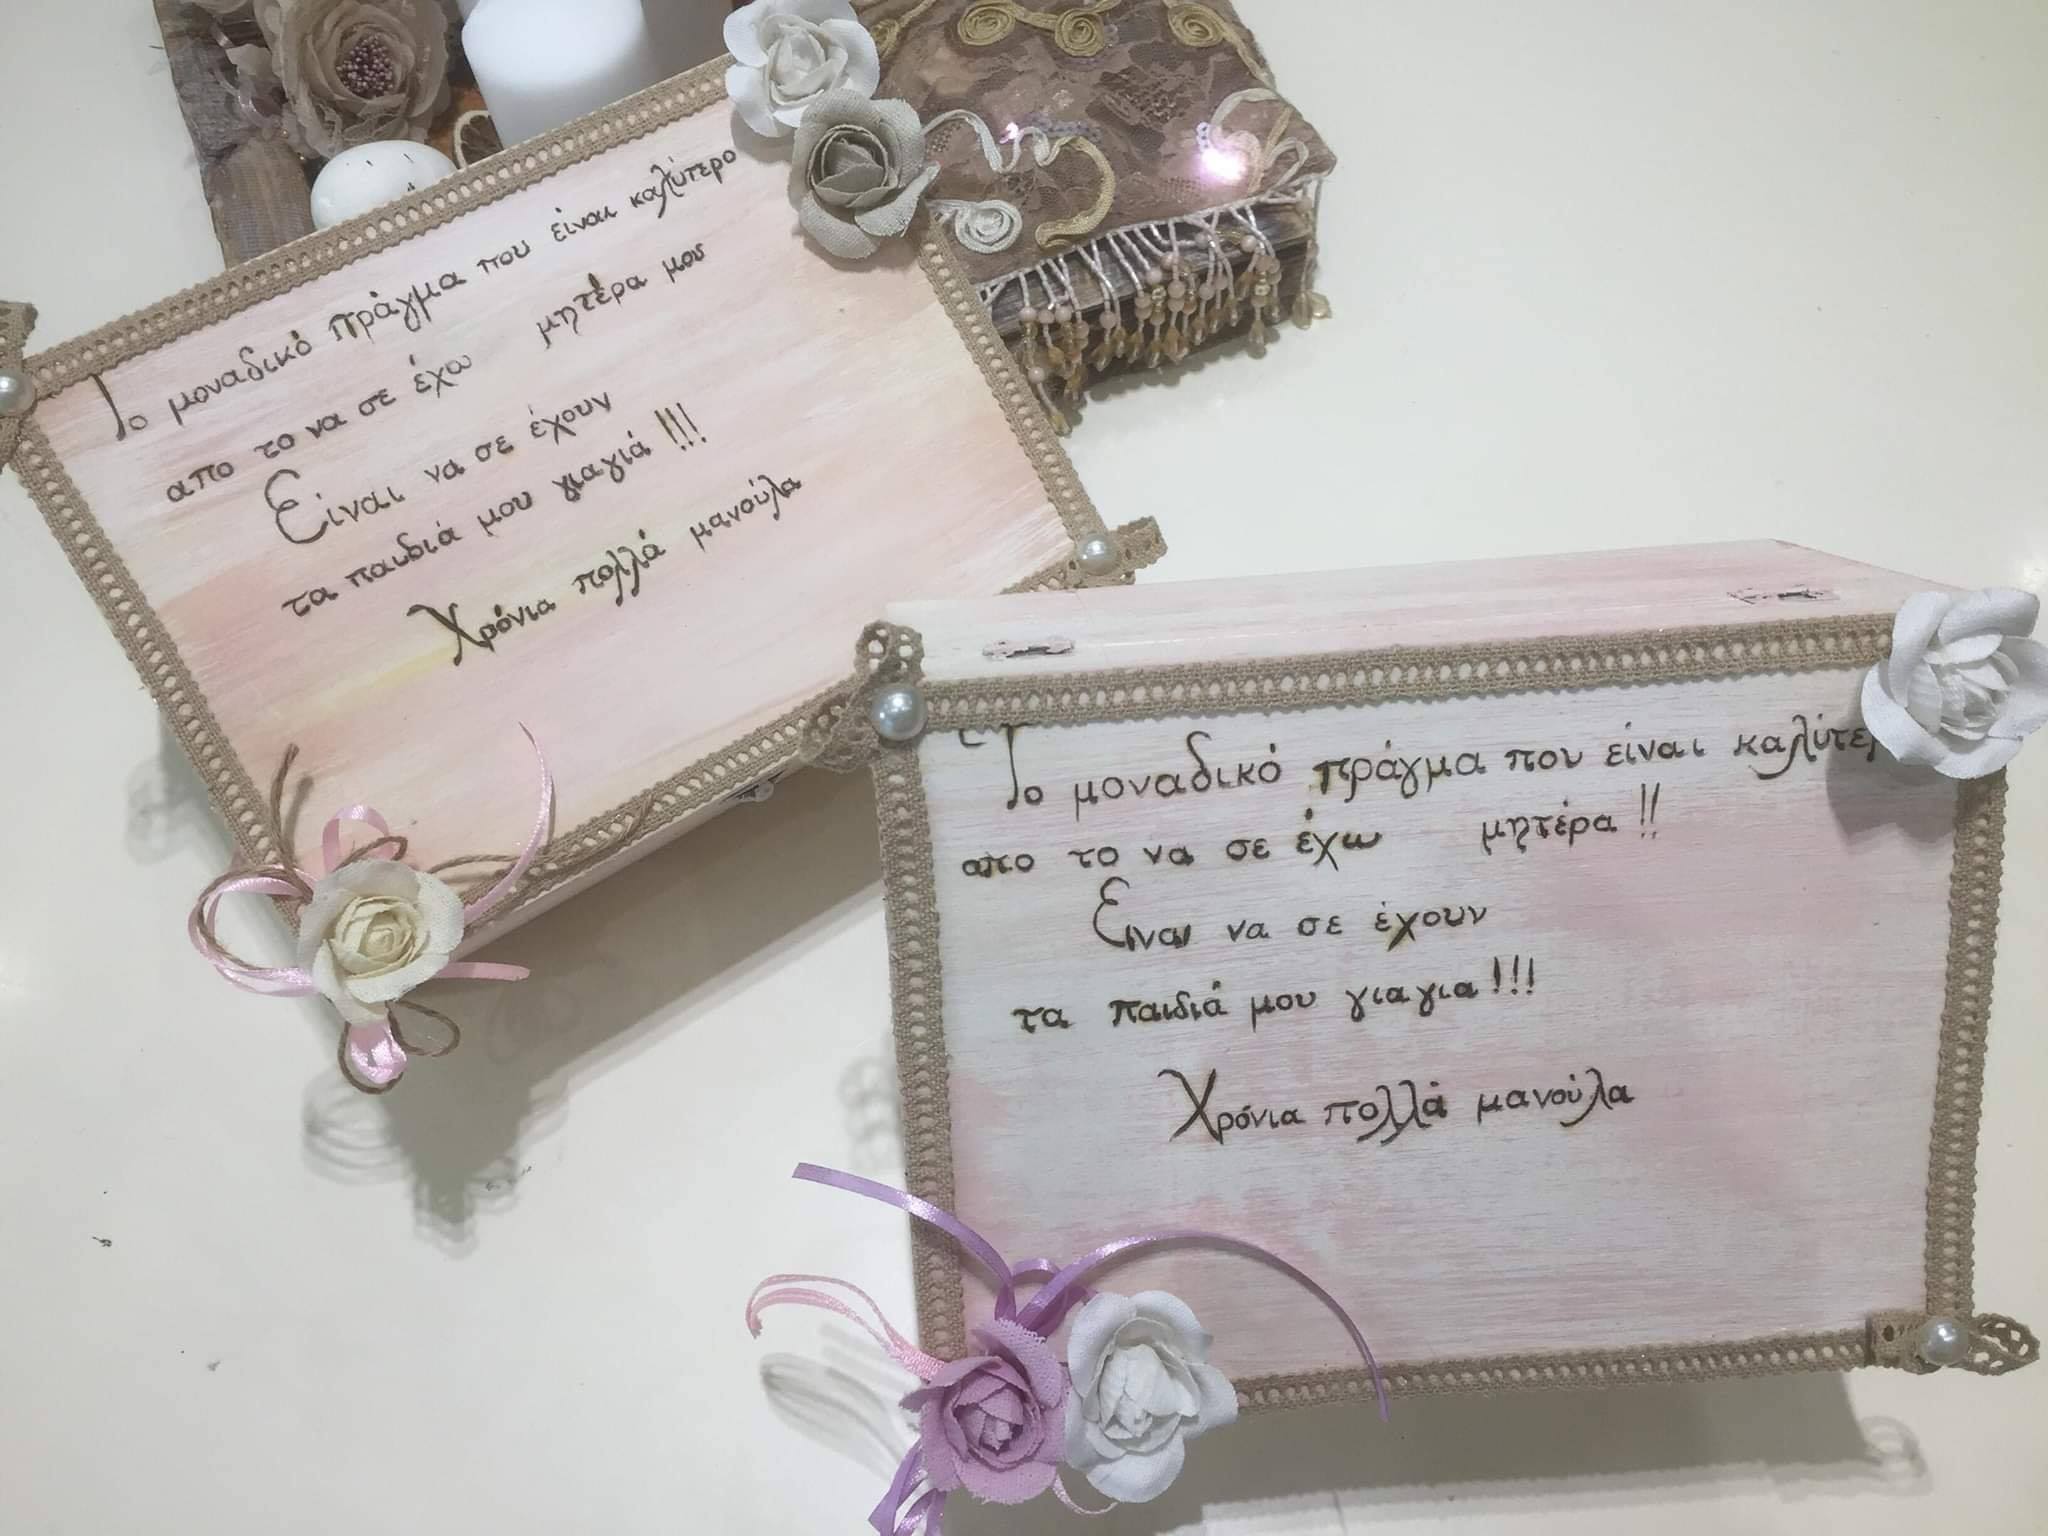 Το μοναδικό πράγμα που είναι καλύτερο
απο το να σε έχω μητέρα μου
Είναι να σε έχουν
τα παιδιά μου γιαγιά !!!
Χρόνια πολλά μανούλα
Το μοναδικό πράγμα που είναι καλύτε
απο το να σε έχω μητέρα !!
Ειναι να σε έχουν
τα παιδιά μου γιαγια !!!
Χρόνια πολλά μανούλα